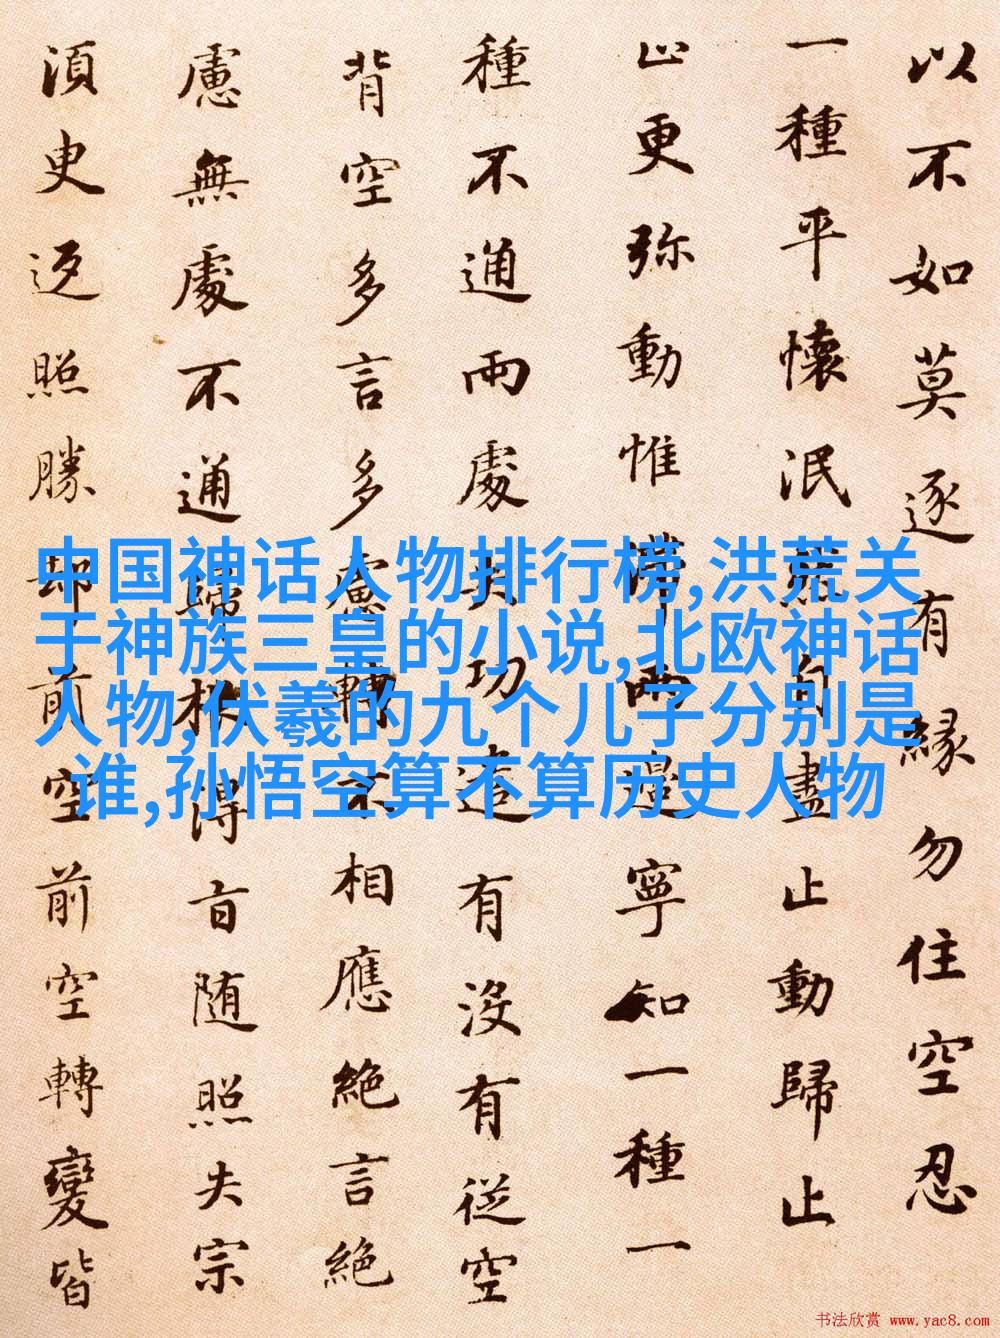 以不如莫逐有緣勿住空忍
一種平懷泯然自盡止動歸止
止更弥動惟滯兩邊寧知一種一
種不通兩處失功遣有沒有從空
背空多言多慮轉不相應絕言絕
慮無處不通歸根得旨随照失宗
湏臾返照勝却前空前空轉變皆
中国神话人物排行榜,洪荒关
于神族三皇的小说,北欧神话
人物,伏羲的九个儿子分别是
谁,孙悟空算不算历史人物
书法欣赏 www.yac8.com